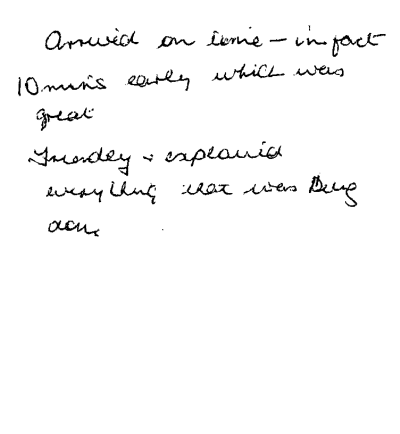 Arrived on time - in fact
10 mins early which was
great
Friendly + explained
everything that was being
done